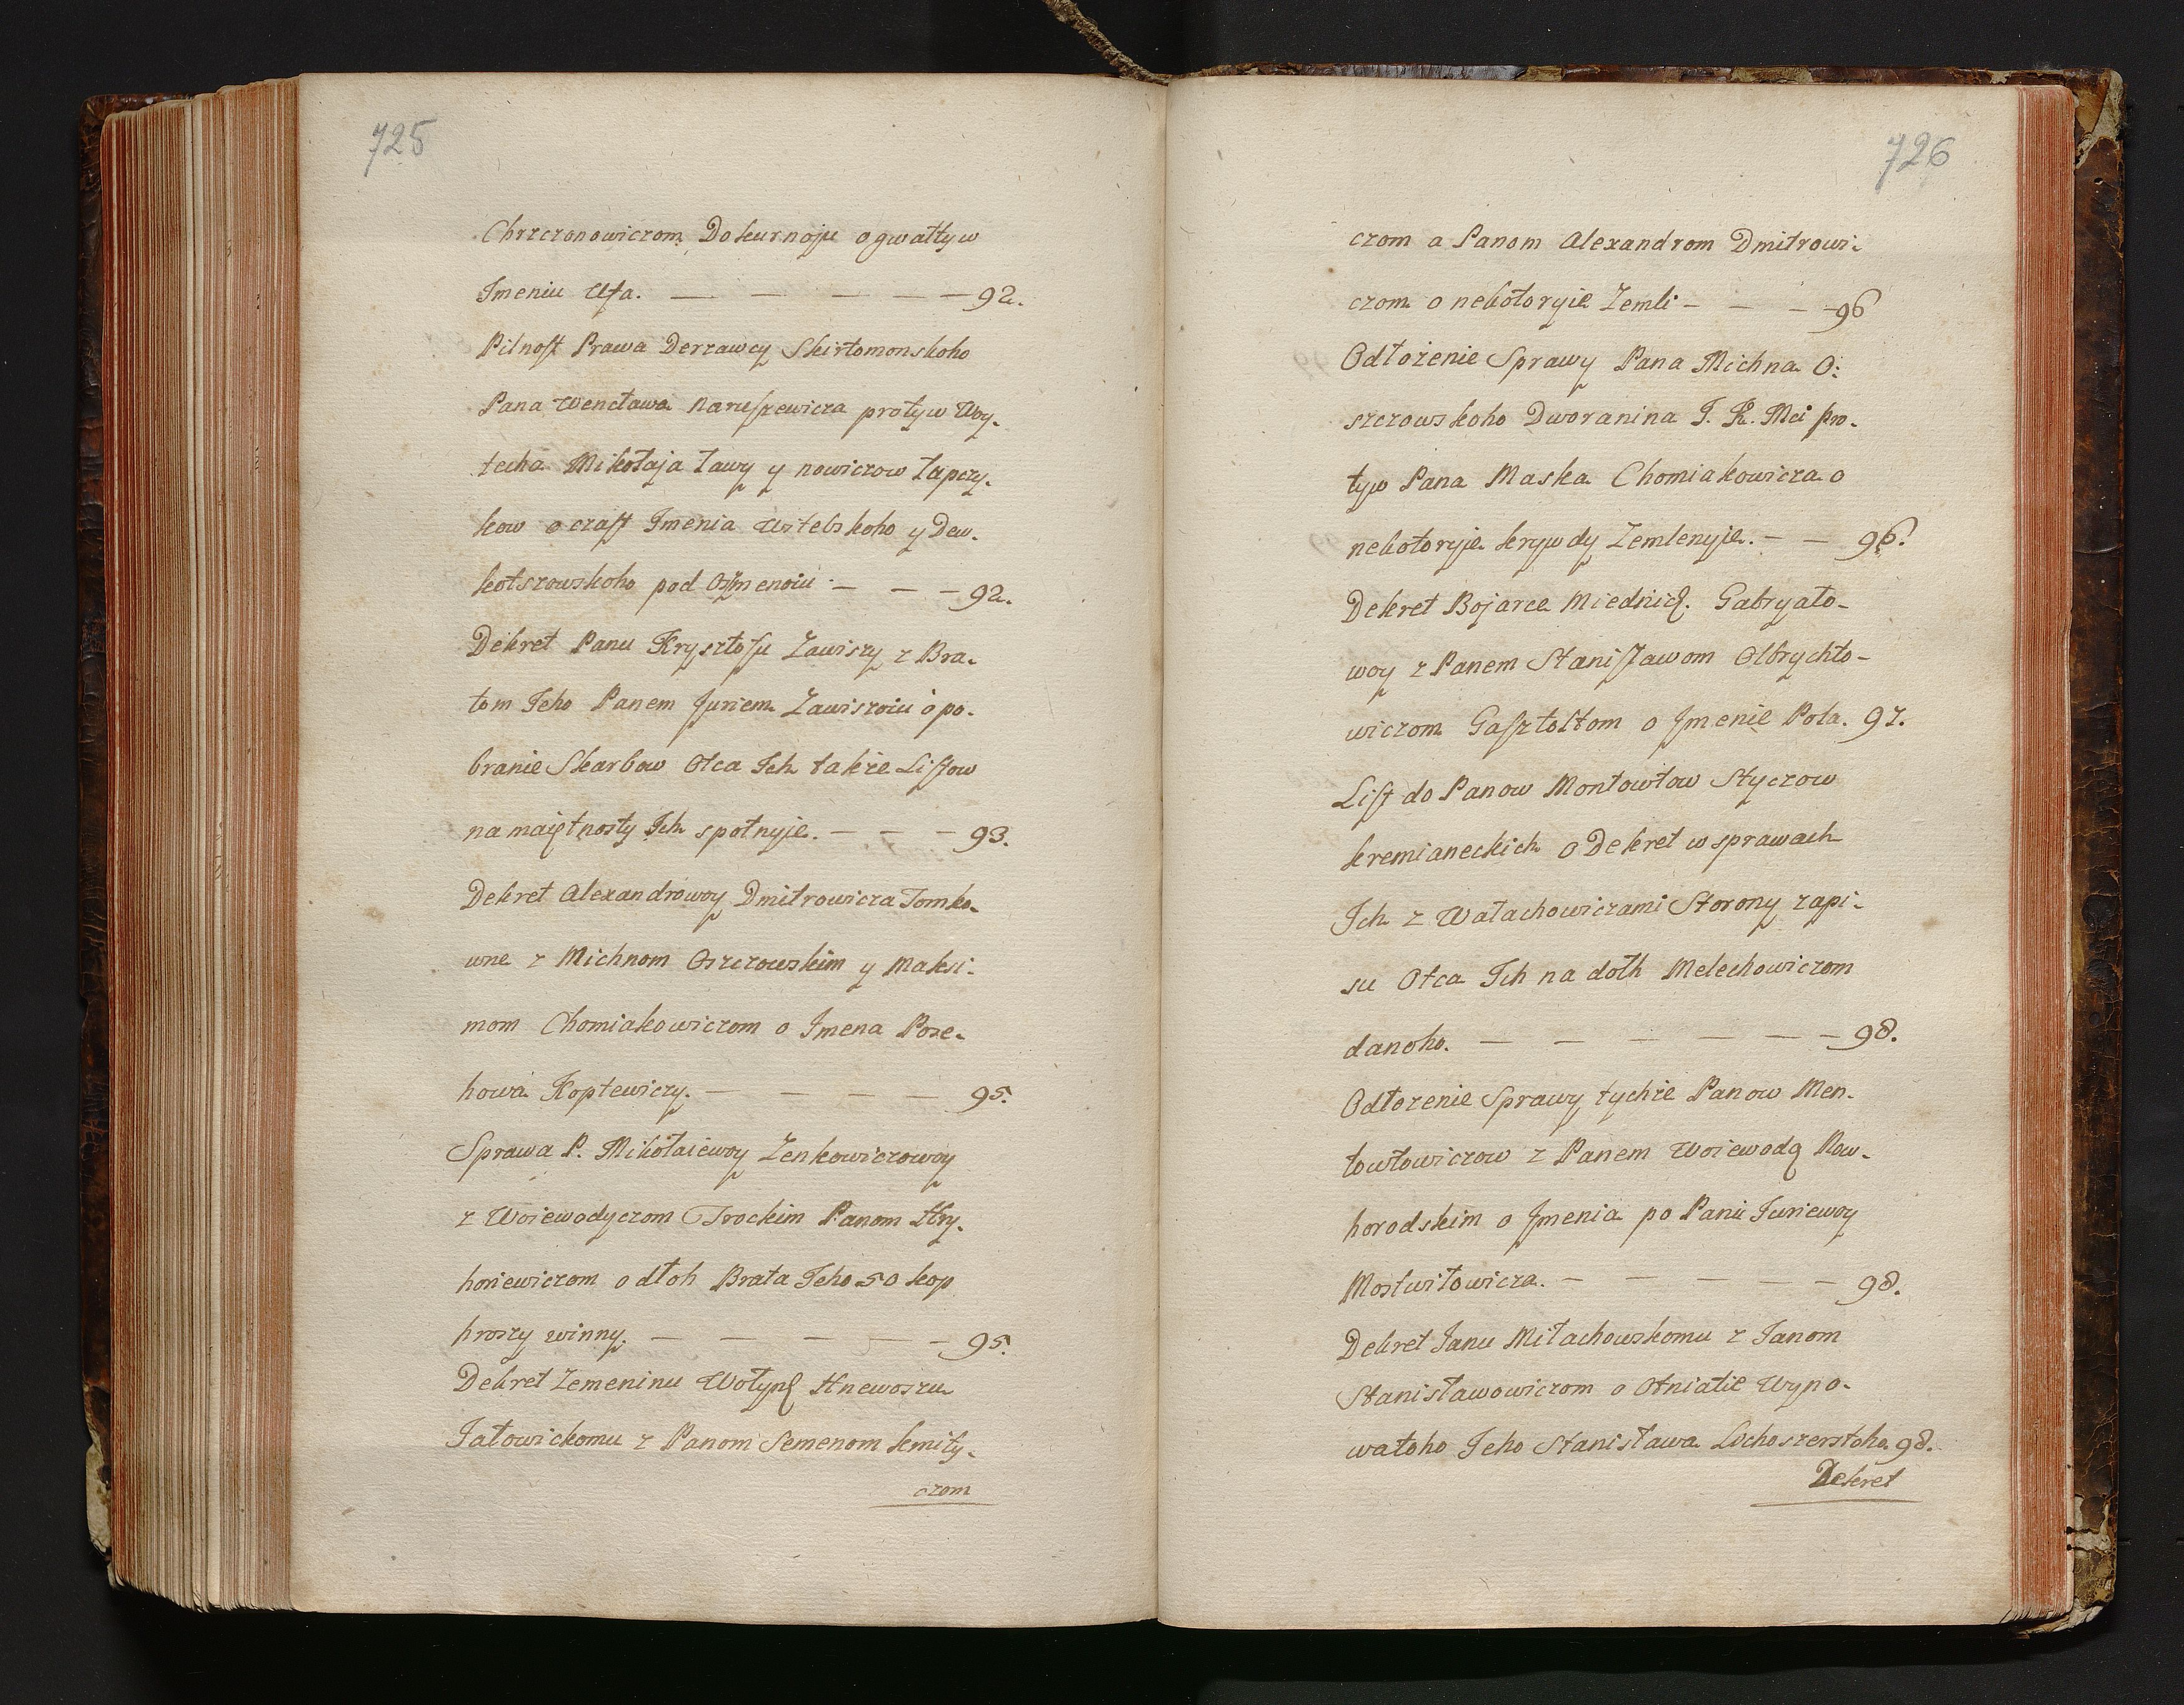 725
Chrzczonowiczom Dokurnoju o gwałty w
Imeniu Uſa. — — — — — 92.
Pilnoſt Prawa Derzawcy Skirtomonskoho
Pana Wencława Naruſzewicza protyw Woy-
techa Mikołaja Ławy y nowiczow Łapczy-
kow o czaſt Imenia Wstebskoho y Dew-
kołszowskoho pod Oſzmenoiu. — — — 92.
Dekret Panu Krysztofu Zawiszy z Bra-
tom Jeho Panem Juriem Zawiszoiu o po-
branie Skarbow Otca Ich także Liſtow
na maiętnosty Ich spolnyje. — — — 93.
Dekret Alexandrowoy Dmitrowicza Tomko-
wne z Michnom Oszczowskim y Maksi-
mom Chomiakowiczom o Imena Poze-
howa Koptewiczy. — — — — 95.
Sprawa P. Mikołaiewoy Zenkowiczowoy
z Woiewodyczom Trockim Panom Hry-
horiewiczom o dłoh Brata Jeho 50 kop
hroszy winny. — — — — — 95.
Dekret Zemeninu Wołyn. Hnewoszu
Jałowickomu z Panom Semenom kmity-
czom
726
czom a Panom Alexandrom Dmitrowi-
czom o nekotoryie Zemli — — — 96
Odłożenie Sprawy Pana Michna O-
szczowskoho Dworanina J. K. Mci pro-
tyw Pana Maska Chomiakowicza o
nekotoryje krywdy Zemlenyje. — — 96.
Dekret Bojarce Miednic. Gabryało-
woy z Panem Staniſławom Olbrychto-
wiczom Gaſztołtom o Jmenie Pola. 97.
Liſt do Panow Montowtow Styczow
kremianeckich o Dekret w sprawach
Ich z Wałachowiczami Storony zapi-
su Otca Ich na dolh Melechowiczom
danoho. — — — — — — 98.
Odłozenie Sprawy tychże Panow Men-
towtowiczow z Panem Woiewodą Now-
horodskim o Jmenia po Panii Juriewoy
Mostwiłowicza. — — — — — 98.
Dekret Janu Miłachowskomu z Janom
Stanisławowiczom o Otniatie Wyno-
watoho Jeho Stanisława Lochoszerstoho. 98.
Dekret